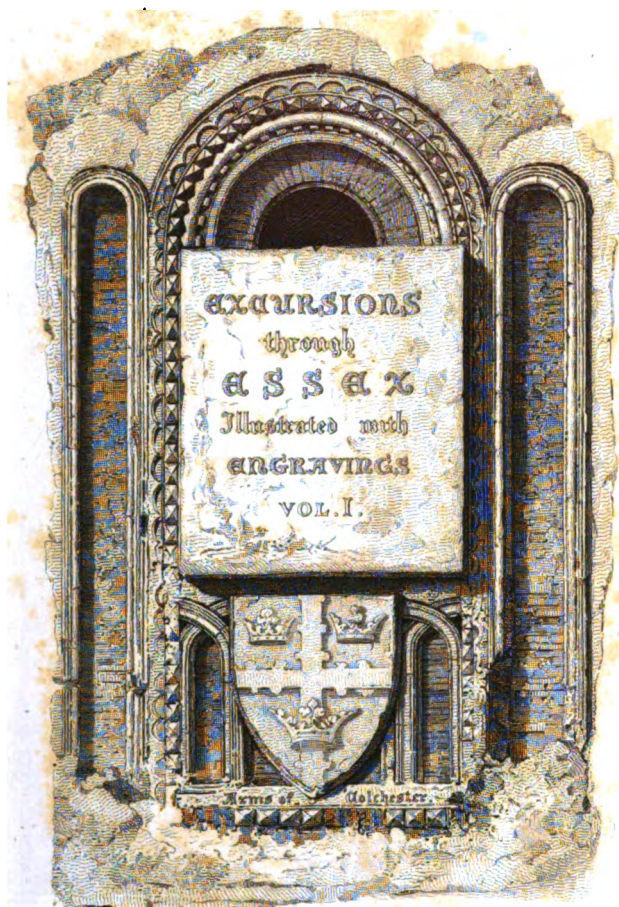 EXCURSIONS
through
ESSEX
Illustrated with
ENGRAVINGS
VOL. I.
Arms of Colchester.